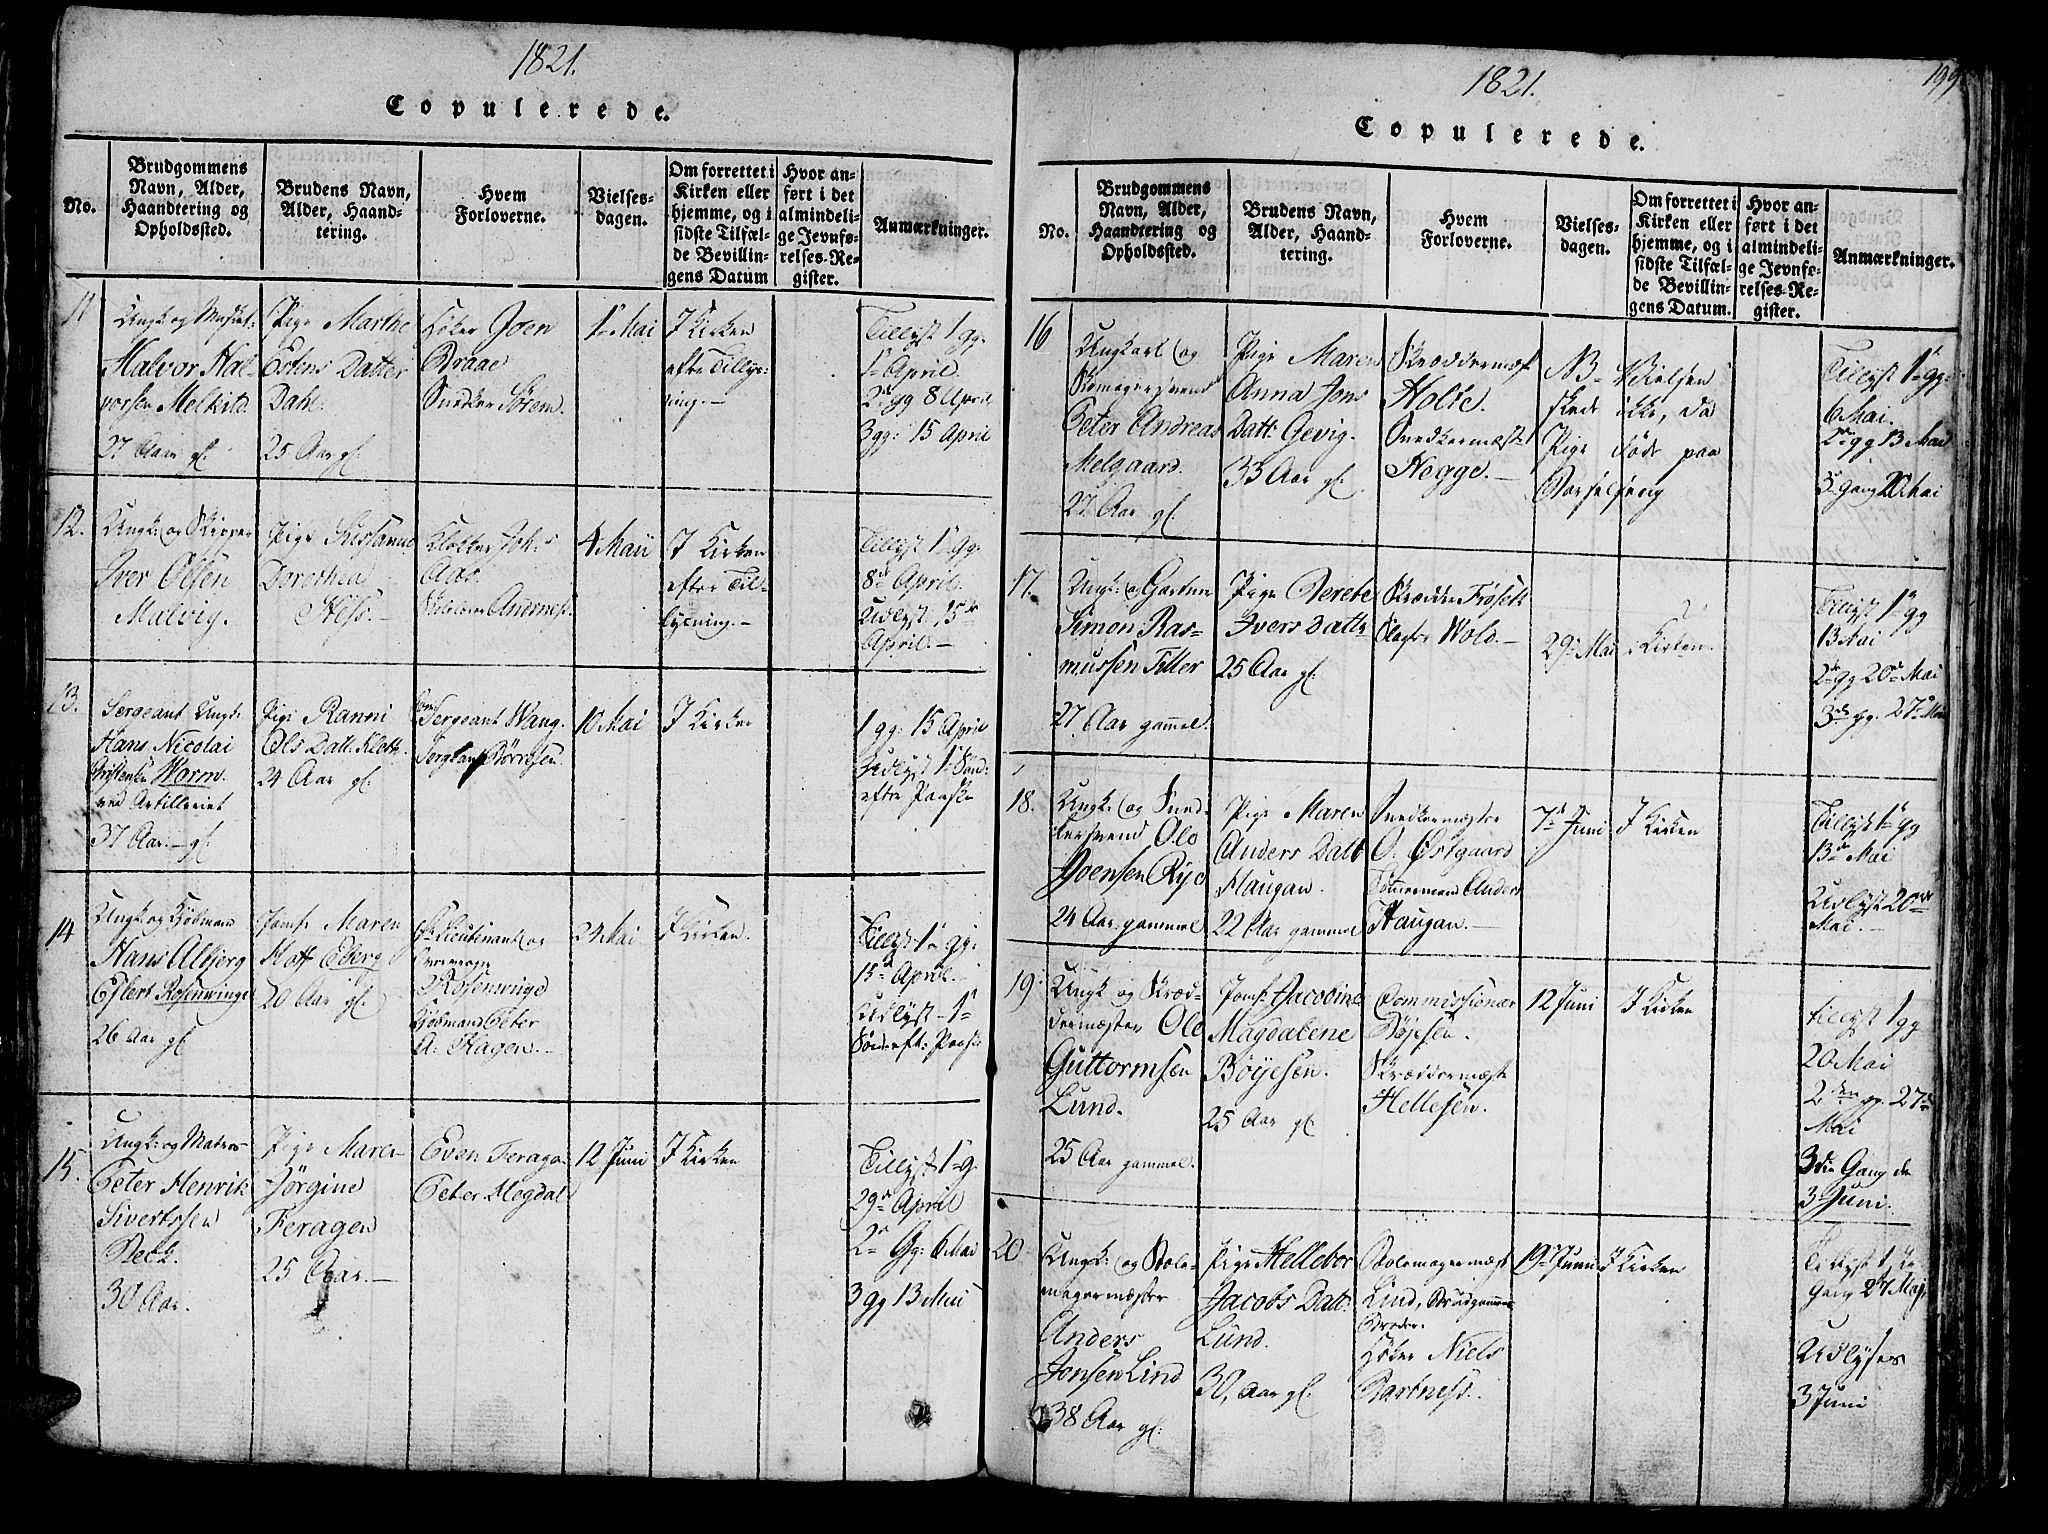 1821.
Copulerede.
No.
Brudgommens Navn, Alder, Haandtering og Opholdssted.
Brudens Navn, Alder, Haandtering.
Hvem Forloverne.
Vielsesdagen.
Om forrettet i Kirken eller hjemme, og i sidste Tilfælde Bevillingens Datum
Hvor anført i det almindelige Jevnførelses-Register.
Anmærkninger.
11
Ungk og
Halvor Hal-
vorsen Melkild.
27 Aar gl.
Pige Marthe
Estens Datter
Dahl.
25 Aar gl.
Høker Joen
Braae
Snedker Sörem.
1 Mai
I Kirken
efter Tillys:
ning.-
Tillyst 1 gg:
1 April
2 gg 8 April
3 gg: 15 April
12.
Ungk: og Skipper
Iver Olsen
Malvig.
Pige Susanne
Dorothea
Hess.-
Klokker Joh:s
Aas.
4 Maii
I Kirken
efter Til-
lysning.-
Tillyst 1 gg:
8 April.
Udlyst 15de
April.-
13.
Sergeant Ungk:
Hans Nicolai
Worm.
ved Artilleriet
37 Aar.- gl.
Pige Ranni
Ols Datt. Klett.
24 Aar gl.
Sergeant Wang.
10 Mai
I Kirken
1 gg: 15 April
Udlyst 1 Sönd:
efter Paaske
14
Ungk og Kjøbmand
Hans Albjerg
Eylert Rosenwinge
26 Aar gl
Jomf: Maren
Hoff Eberg
20 Aar gl.
Pr: Lieutenant og
Rosenwinge
Kjøbmand Peter
A: Hagen.-
24 Mai
I Kirken.
Tillyst 1 gg:
15 April.
Udlyst 1
Sönd: eft: Paaske
15.
Ungk: og Matros
Peter Henrik
Sivertssen
Beck.
30 Aar.
Pige Maren
Jørgine
Feragen
25 Aar.-
Even Feragen
Peter Mogdal
12 Juni
I Kirken
Tillyst 1 g.
29 April
2 Gg: 6 Mai
3 gg 13 Mai
1821.
199
Copulerede.
No.
Brudgommens Navn, Alder, Haandtering og Opholdssted.
Brudens Navn, Alder, Haandtering.
Hvem Forloverne.
Vielsesdagen.
Om forrettet i Kirken eller hjemme, og i sidste Tilfælde Bevillingens Datum.
Hvor anført i det almindelige Jevnførelses-Register.
Anmærkninger.
16
Ungkarl og
Skomagersvend
Peter Andreas
Melgaard.
27 Aar gl.
Pige Maren
Anna Jons
Datt: Gevig.
33 Aar gl.
Skræddermest
Holte.
Snedkermester
Hegge.-
NB- Vielsen
skede ikke, da
Pige døde paa
Barselseng
Tillyst 1 gg:
6 Mai.
2 gg 13 Mai
3 gang 20 Mai
17.
Ungk: og Gartner
Simon Ras-
mussen Tiller
27 Aar gammel.
Pige Berethe
Ivers Datt:
25 Aar gl.
Skrædder Fröseth
Wold.-
29 Mai
i Kirken.
Tillyst 1 gg
13 Mai
2de gg 20 Mai
3de gg. 27 Mai
18.
Ungk: og Sned-
kersvend Ole
Joensen Rye
24 Aar gammel
Pige Maren
Anders Datt
Haugan.
22 Aar gammel
Snedkermester
O. Östgaard
Tömmermand Anders
Haugan.-
7 Juni
I Kirken
Tillyst 1 gg
13 Mai
Udlyst 20de
Mai.-
19
Ungk og Skræd-
dermester Ole
Guttormsen
Lund.
25 Aar gammel.
Jomf: Jacobine
Magdalene
Böyesen.
25 Aar gl.
Commissionær
Böyesen.
Skræddermester
Hellesen.
12 Juni
I Kirken
tillyst 1 gg
20 Mai
2den gg. 27de
Mai
3die Gang den
3 Juni.
20
Ungk: og Stole-
magermester
Anders
Jonsen Lind
38 Aar gl:
Pige Hellebor
Jacobs Datt:
Lund.
30, Aar gl.
Stolemagermest
Lind, Brudgommens
Broder.
Höker Niels
Bartness.
19 Juni
I Kirken
Tillyst 1
Gang 27 Maj
Udlyses
3 Juni